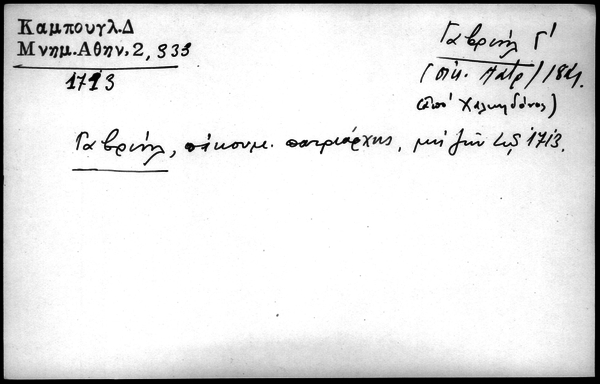 Καμπουγλ.Δ
Μνημ.Αθην.2, 333
1713
Γαβριήλ Γ'
(οἰκ. Πατρ)
(ἀπό Χαλκηδόνος)
Γαβριήλ, οἰκουμ. πατριάρχης, 1713.